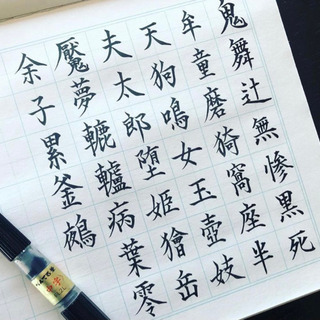 鬼舞辻無惨黒死
牟童磨猗窩座半
天狗鳴女玉壺妓
夫太郎堕姫獪岳
魘夢轆轤病葉零
余子累釜鵺